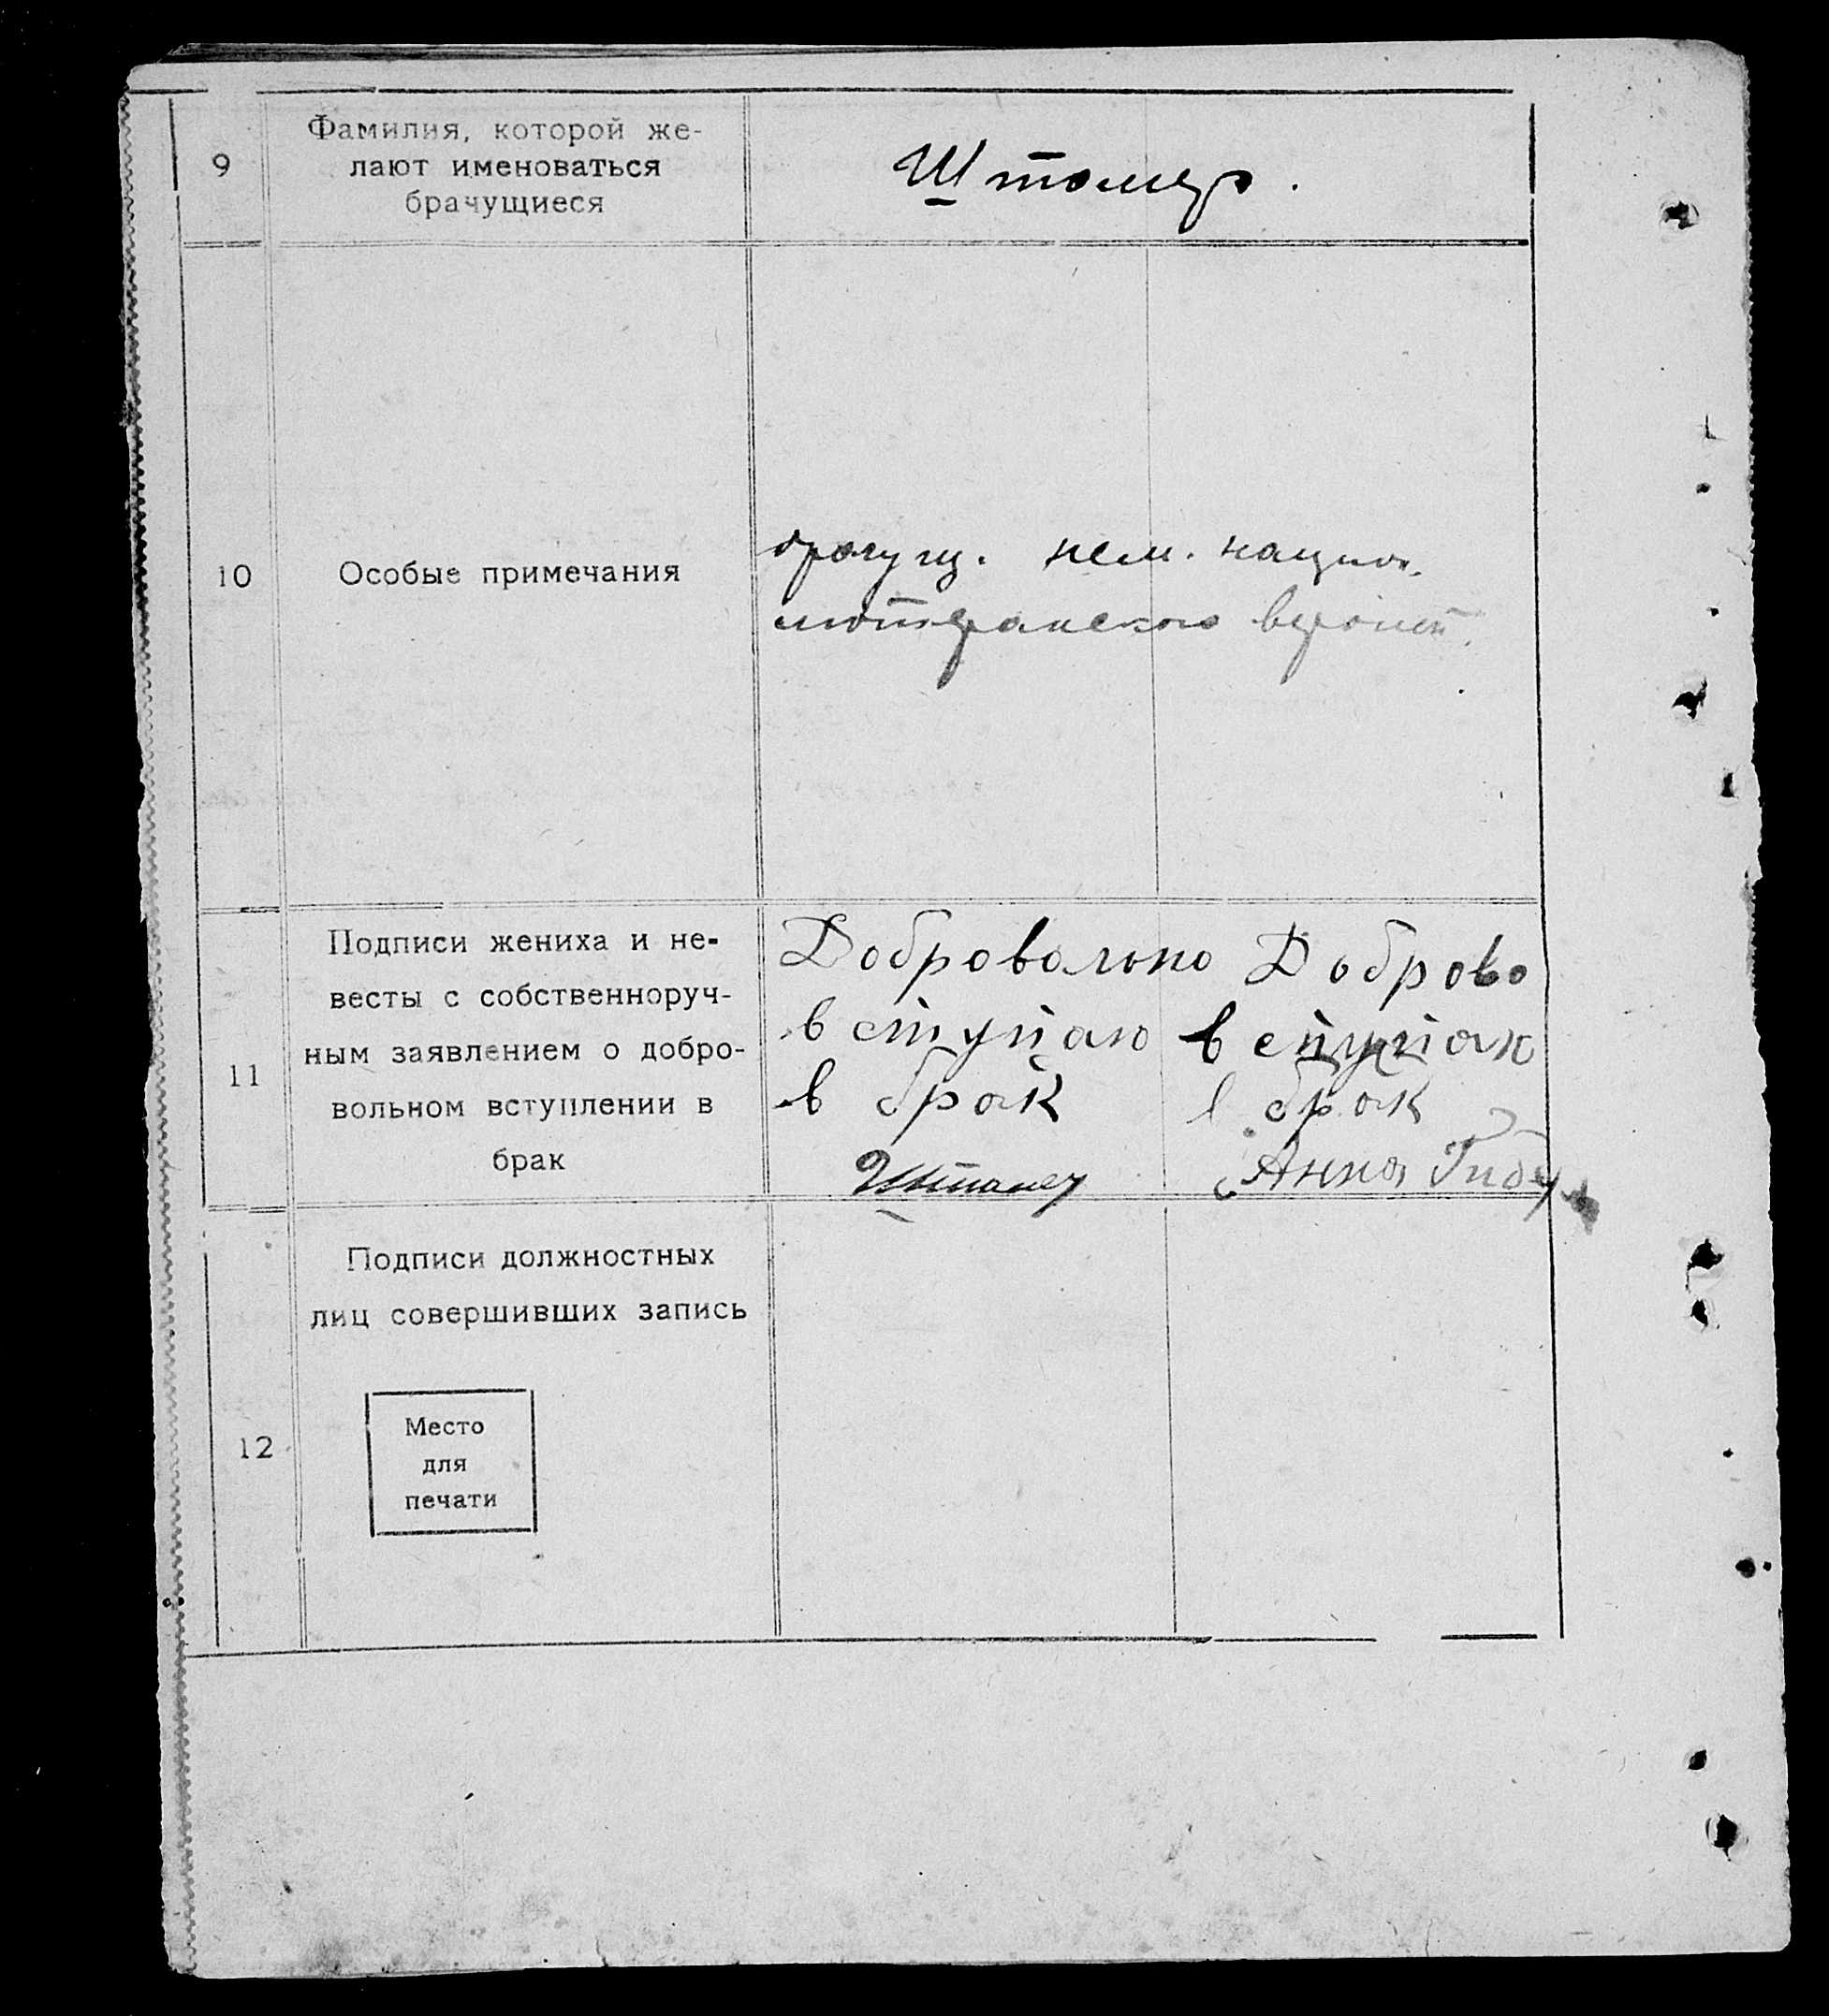 9
Фамилия, которой же-
лают именоваться
брачущиеся
Штомер.
10
Особые примечания
брачущ. нем. национ.
лютеранского вероисп.
11
Подписи жениха и не-
весты с собственноруч-
ным заявлением о добро-
вольном вступлении в
брак
Добровольно
вступаю
в брак
Доброво
вступаю
в брак
Анна
12
Подписи должностных
лиц совершивших запись
Место
для
печати